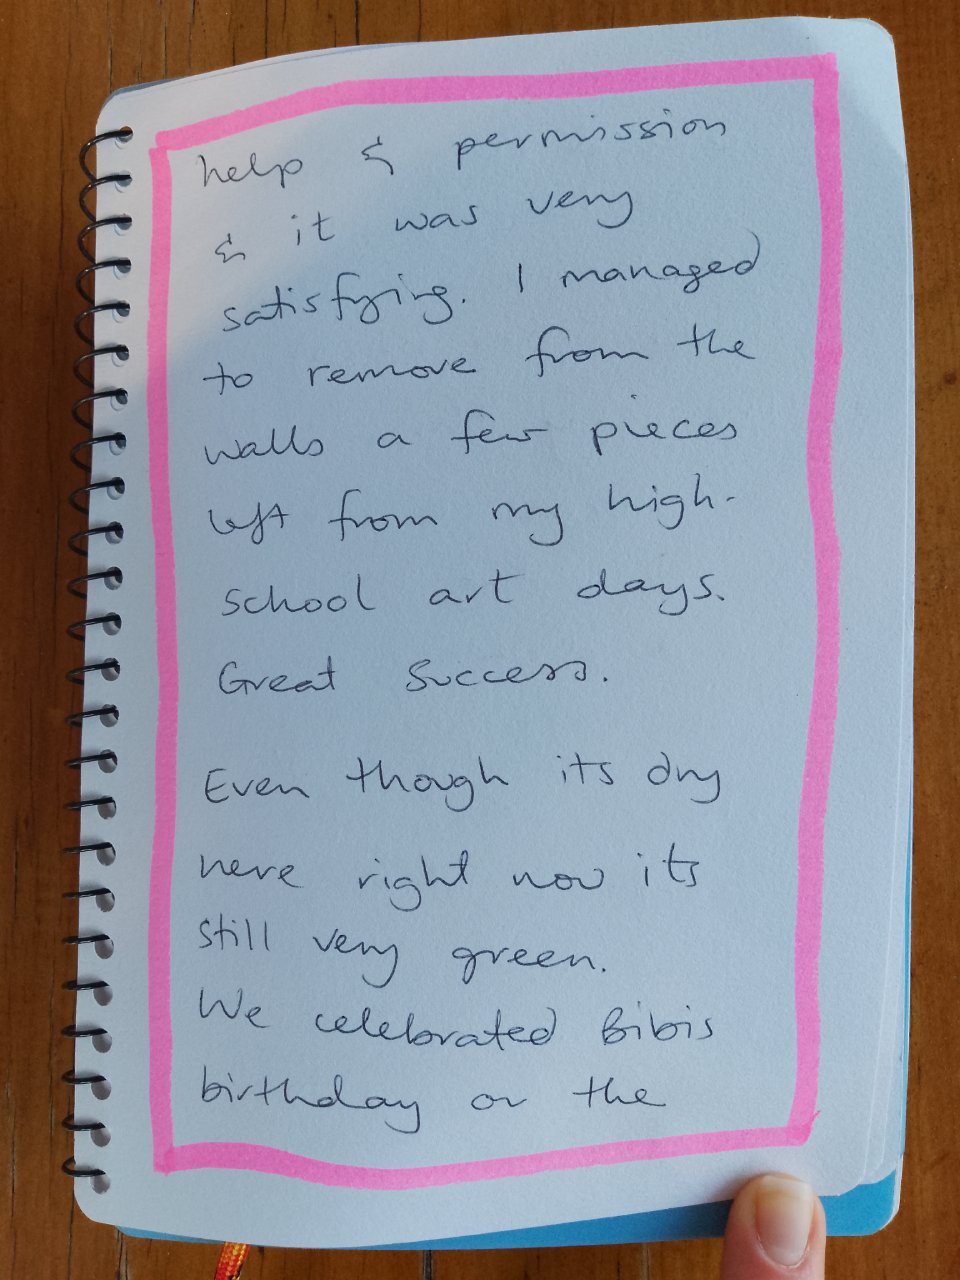 help & permission
& it was very
satisfying. I managed
to remove from the
walls a few pieces
left from my high-
school art days.
Great success.
Even though its dry
here right now its
still very green.
We celebrated Bibis
birthday on the